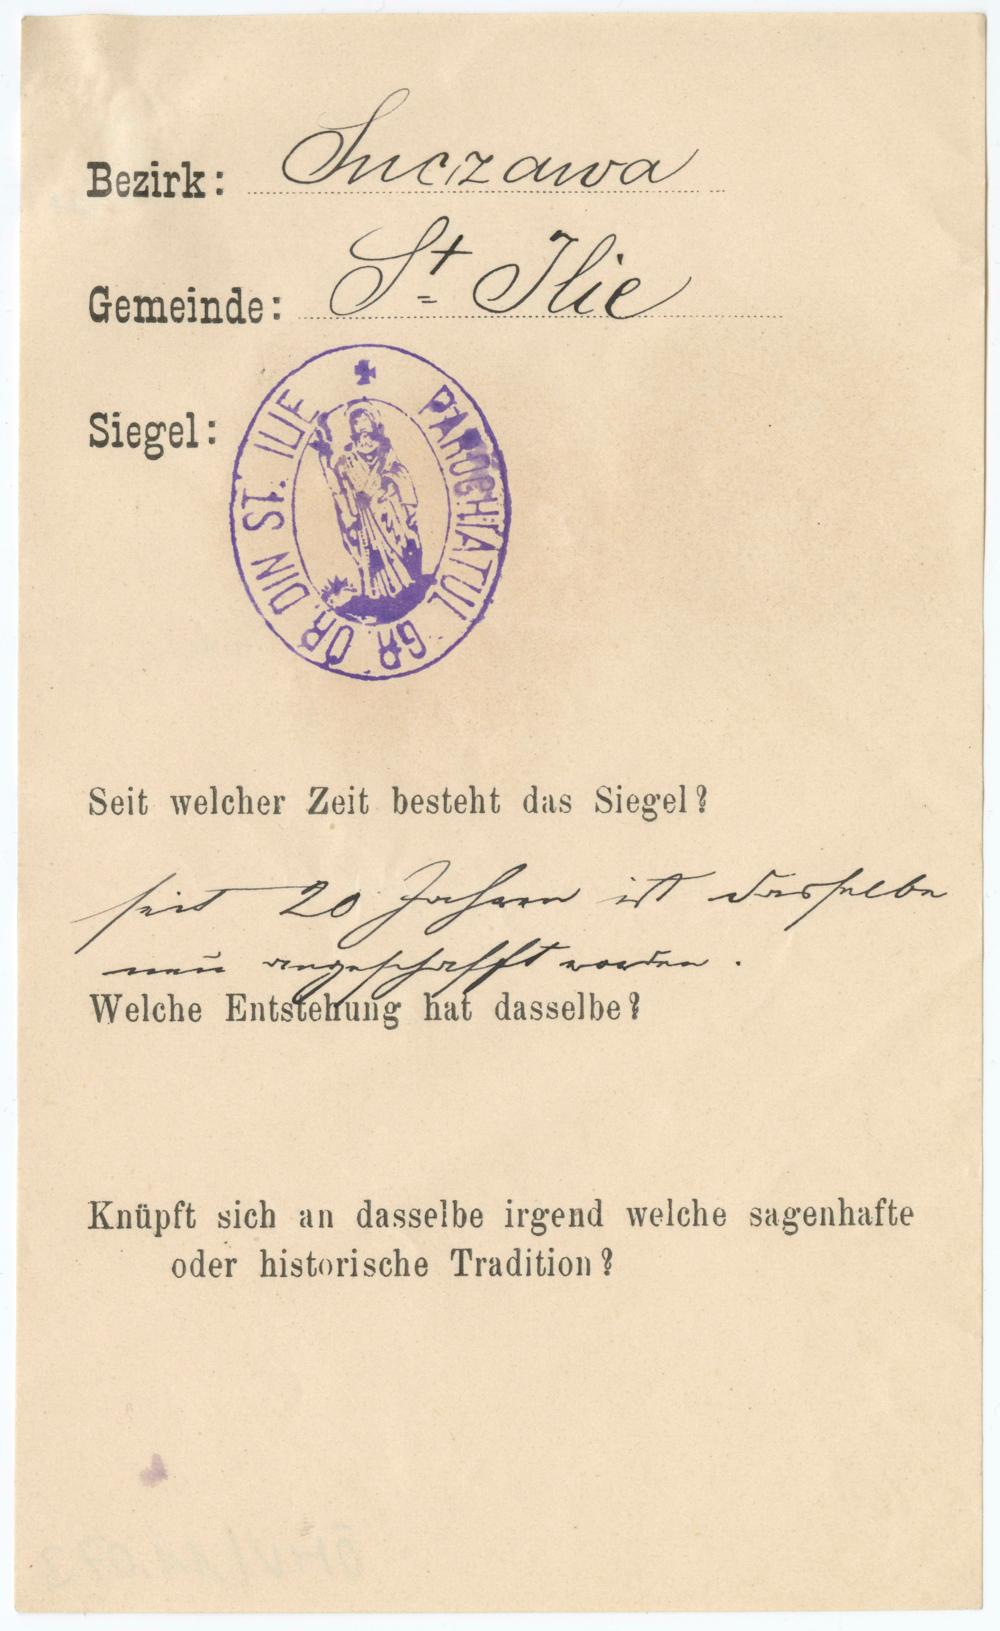 Bezirk: Suczawa
Gemeinde: St Ilie
Siegel:
PAROCHIATUL GR. OR DIN ST. ILIE
Seit welcher Zeit besteht das Siegel?
seit 20 Jahren ist dasselbe
neu angeschafft worden.
Welche Entstehung hat dasselbe?
Knüpft sich an dasselbe irgend welche sagenhafte
oder historische Tradition?